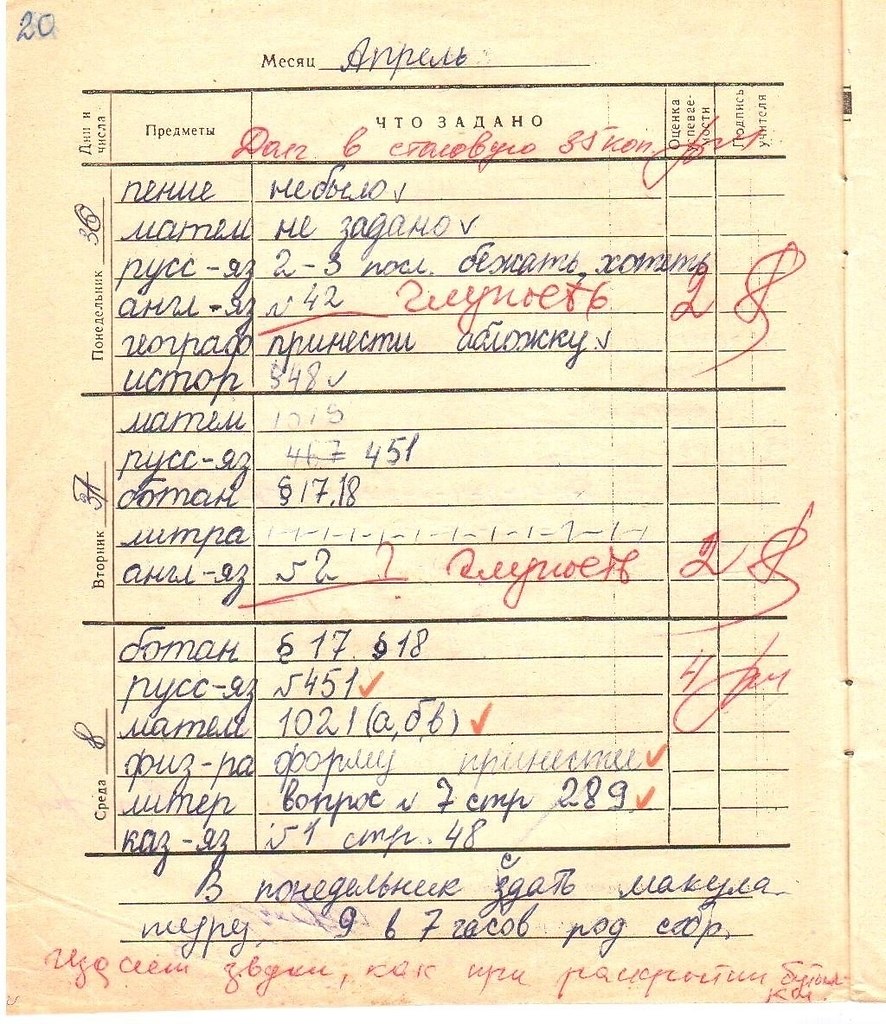 20
Месяц Апрель
Дни и числа Предметы ЧТО ЗАДАНО Оценка успеваемости Подпись учителя
Долг в столовую 35 коп.
Понедельник 6
пение небыло
матем не задано
русс-яз 2-3 посл. бежать, хотеть
англ-яз №42 глупость 2
географ принести обложку
истор §48
Вторник
матем
русс-яз 467 451
ботан § 17, 18
литра
англ-яз №2 ? глупость 2
Среда 8
ботан § 17 § 18
русс-яз №451 4
матем 1021 (а, б, в)
физ-ра форму принести
литер вопрос № 7 стр 289
каз-яз №1 стр. 48
В понедельник сдать макула-
туру 9 в 7 часов род собр.
Издает звуки, как при раскрытии бутыл-
ки.